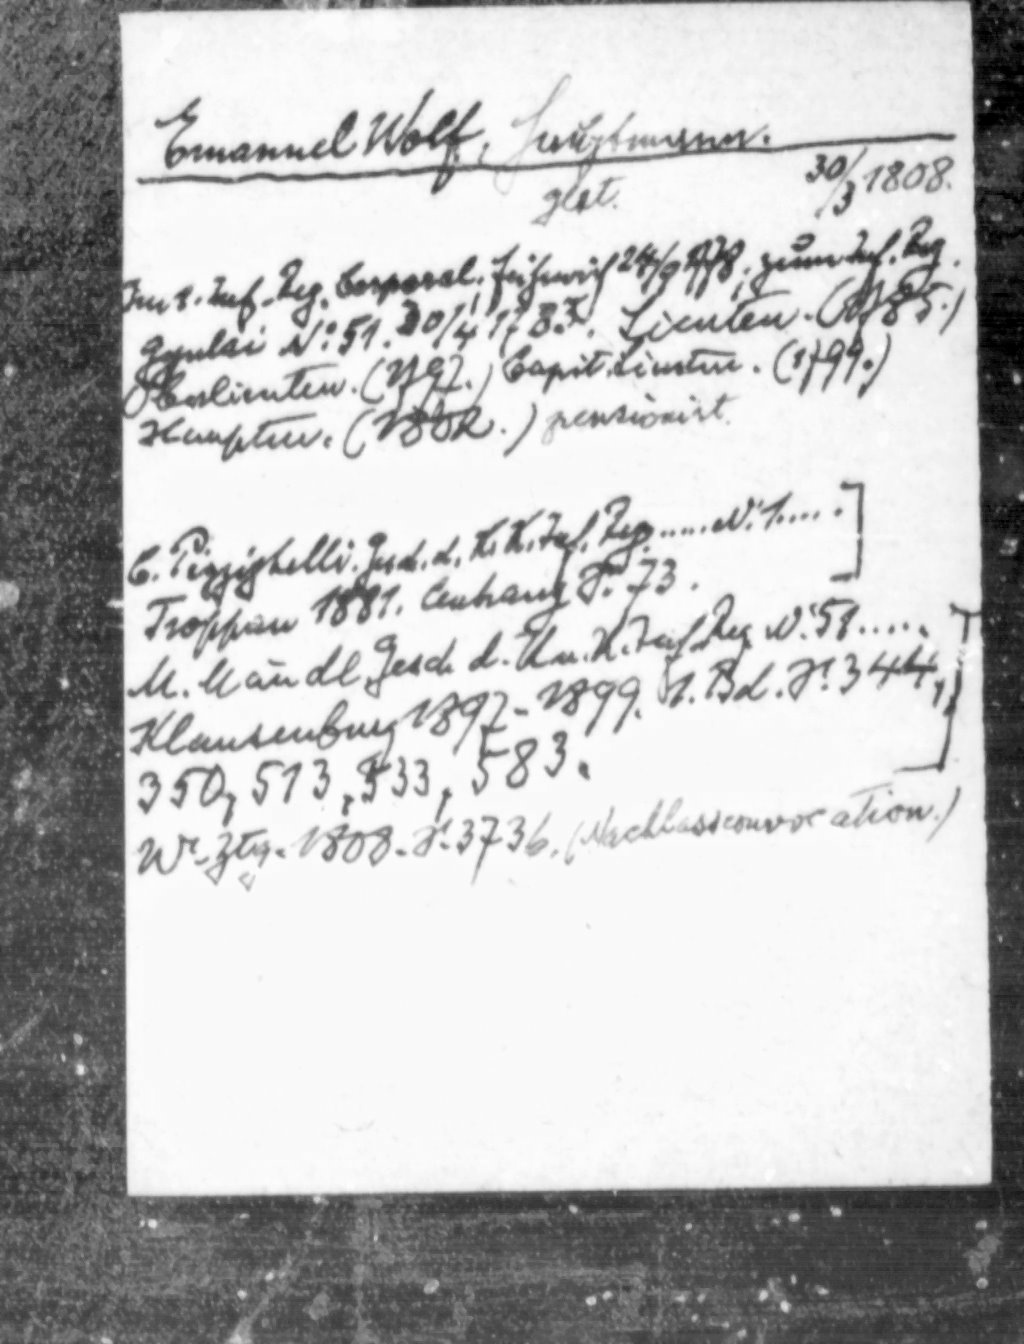 Emanuel Wolf, Hauptmann.
gest. 30/3 1808.
Im 1. Inf. Reg. Corporal, Fähnrich 24/9 1778, zum Inf. Reg.
Gyulai N° 51. 30/4 1783. Lieuten. (1785.)
Oberlieuten. (1797.) Capit. Lieuten. (1799.)
Hauptm. (1802.) pensionirt.
C. Pizzighelli. Gesch. d. K. K. Inf. Reg. ..... N° 1. ....
Troppau 1881. Anhang S. 73.
M. Maendl Gesch. d. K. u. K. Inf. Reg. N° 51 .....
Klausenburg 1897-1899. I. Bd. S. 344,
350, 513, 533, 583.
Wr. Ztg. 1808. S. 3736. (Nachlassconvocation.)